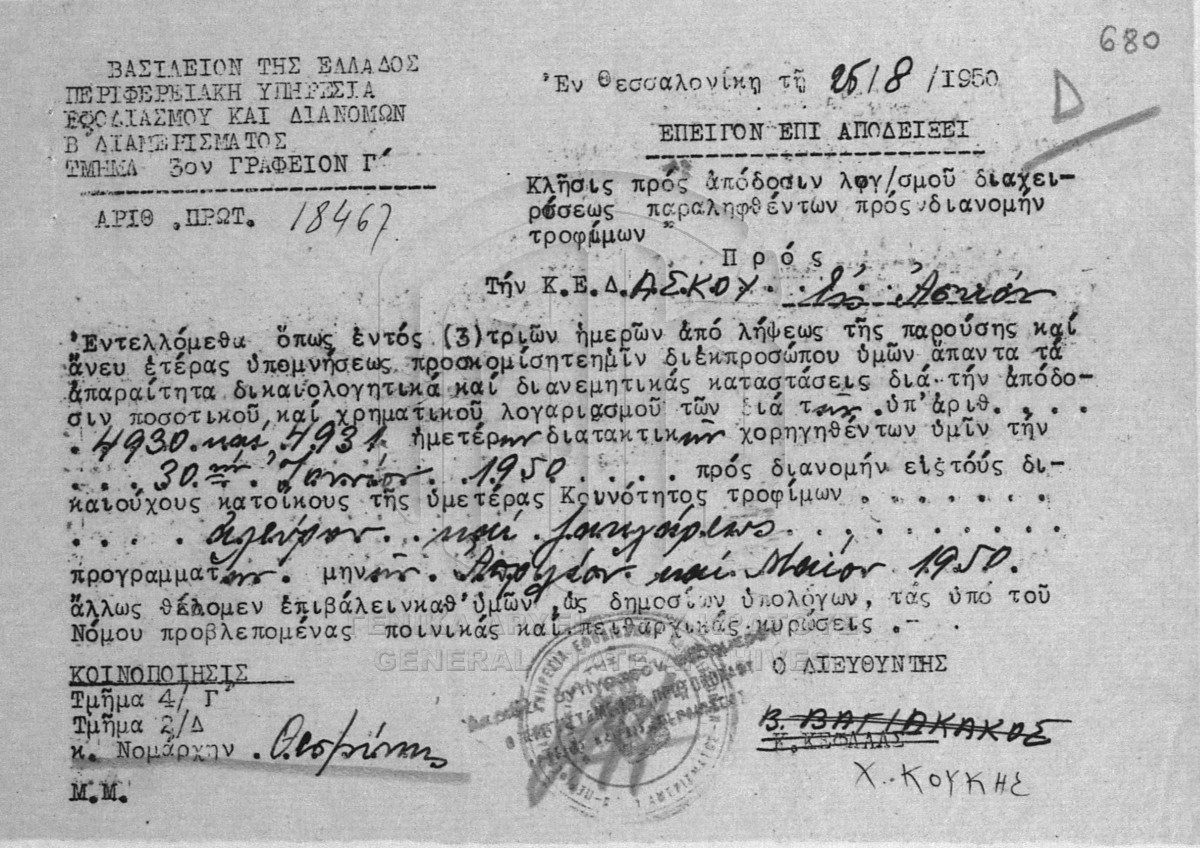 680
ΒΑΣΙΛΕΙΟΝ ΤΗΣ ΕΛΛΑΔΟΣ
ΠΕΡΙΦΕΡΕΙΑΚΗ ΥΠΗΡΕΣΙΑ
ΕΦΟΔΙΑΣΜΟΥ ΚΑΙ ΔΙΑΝΟΜΩΝ
Β΄ΔΙΑΜΕΡΙΣΜΑΤΟΣ
ΤΜΗΜΑ 3ον ΓΡΑΦΕΙΟΝ Γ΄
ΑΡΙΘ.ΠΡΩΤ. 18467
Ἐν Θεσσαλονίκῃ τῇ 25/8/1950
Δ
ΕΠΕΙΓΟΝ ΕΠΙ ΑΠΟΔΕΙΞΕΙ
Κλῆσις πρός ἀπόδοσιν λογ/σμοῦ διαχει-
ρίσεως παραληφθέντων πρός διανομήν
τροφίμων
Πρός
Τήν Κ.Ε.Δ. ΑΣΚΟΥ
Ἐντελλόμεθα ὅπως ἐντός (3)τριῶν ἡμερῶν ἀπό λήψεως τῆς παρούσης καί
ἄνευ ἑτέρας ὑπομνήσεως προσκομίσητεἡμῖν διἐκπροσώπου ὑμῶν ἅπαντα τά
ἀπαραίτητα δικαιολογητικά καί διανεμητικάς καταστάσεις διά τήν ἀπόδο-
σιν ποσοτικοῦ καί χρηματικοῦ λογαριασμοῦ τῶν διά τῶν ὑπ'ἀριθ. . . .
. 4930 καί 4931 ἡμετέρων διατακτικῶν χορηγηθέντων ὑμῖν τήν
. . . 30ήν Ἰουνίου 1950 . . . . πρός διανομήν είςτούς δι-
καιούχους κατοίκους τῆς ὑμετέρας Κοινότητος τροφίμων . . . . . . .
. . . . ἀλεύρου καί ζαχάρεως . . . . . . . . . .
προγραμμάτων μηνῶν Ἀπριλίου καί Μαΐου 1950.
ἄλλως θέλομεν ἐπιβάλεινκαθ'ὑμῶν, ὡς δημοσίων ὑπολόγων, τάς ὑπό τοῦ
Νόμου προβλεπομένας ποινικάς καί πειθαρχικάς κυρώσεις .-
GENERAL STATE ARCHIVES
ΚΟΙΝΟΠΟΙΗΣΙΣ
Τμῆμα 4/ Γ΄
Τμῆμα 2/Δ
κ. Νομάρχην
Μ.Μ.
Ο ΔΙΕΥΘΥΝΤΗΣ
Β. ΒΑΓΙΑΚΑΚΟΣ
Κ. ΚΕΦΑΛΑΣ
Χ. ΚΟΥΚΗΣ